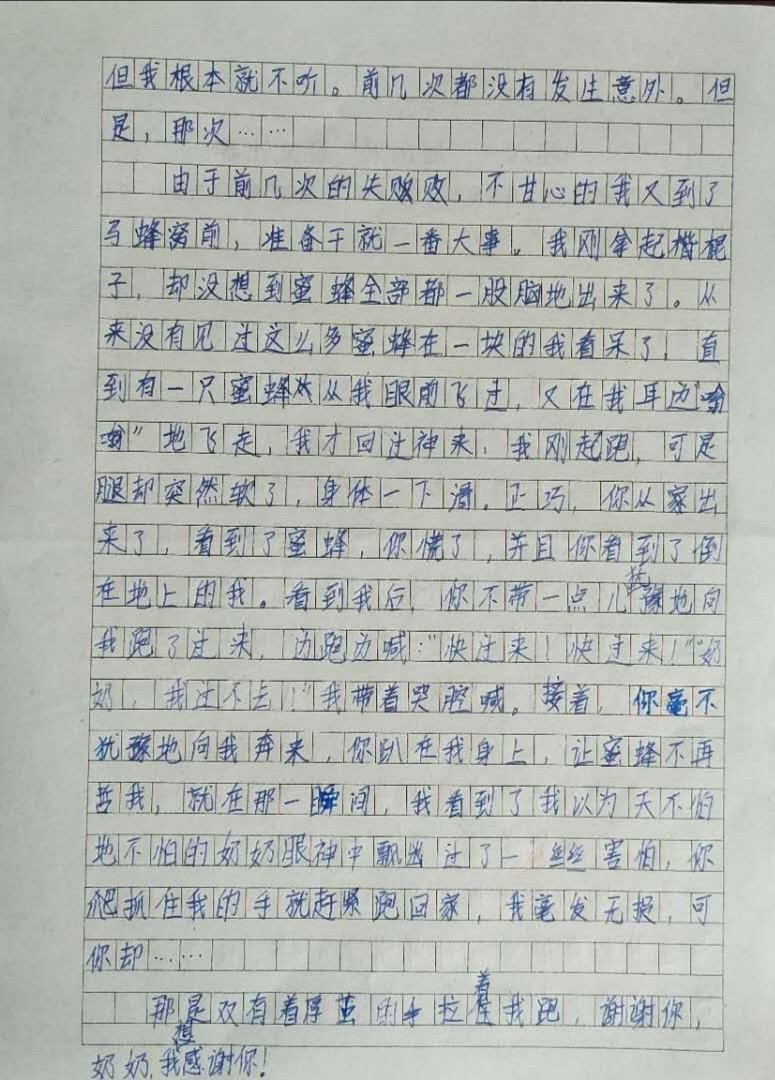 但我根本就不听。前几次都没有发生意外。但
是，那次……
由于前几次的失败，不甘心的我又到了
马蜂窝前，准备干就一番大事。我刚拿起楷棍
子，却没想到蜜蜂全部都一股脑地出来了。从
来没有见过这么多蜜蜂在一块的我看呆了，直
到有一只蜜蜂从我眼前飞过，又在我耳边“嗡
嗡”地飞走，我才回过神来，我刚起跑，可是
腿却突然软了，身体一下滑。正巧，你从家出
来了，看到了蜜蜂，你慌了，并且你看到了倒
在地上的我。看到我后，你不带一点儿犹豫地向
我跑了过来，边跑边喊：“快过来！快过来！”“奶
奶，我过不去！”我带着哭腔喊。接着，你毫不
犹豫地向我奔来，你趴在我身上，让蜜蜂不再
蜇我，就在那一瞬间，我看到了我以为天不怕
地不怕的奶奶眼神中飘出过了一丝害怕，你
爬抓住我的手就赶紧跑回家，我毫发无损，可
你却……
那是双有着厚茧的手拉着我跑，谢谢你，
奶奶，我想感谢你！